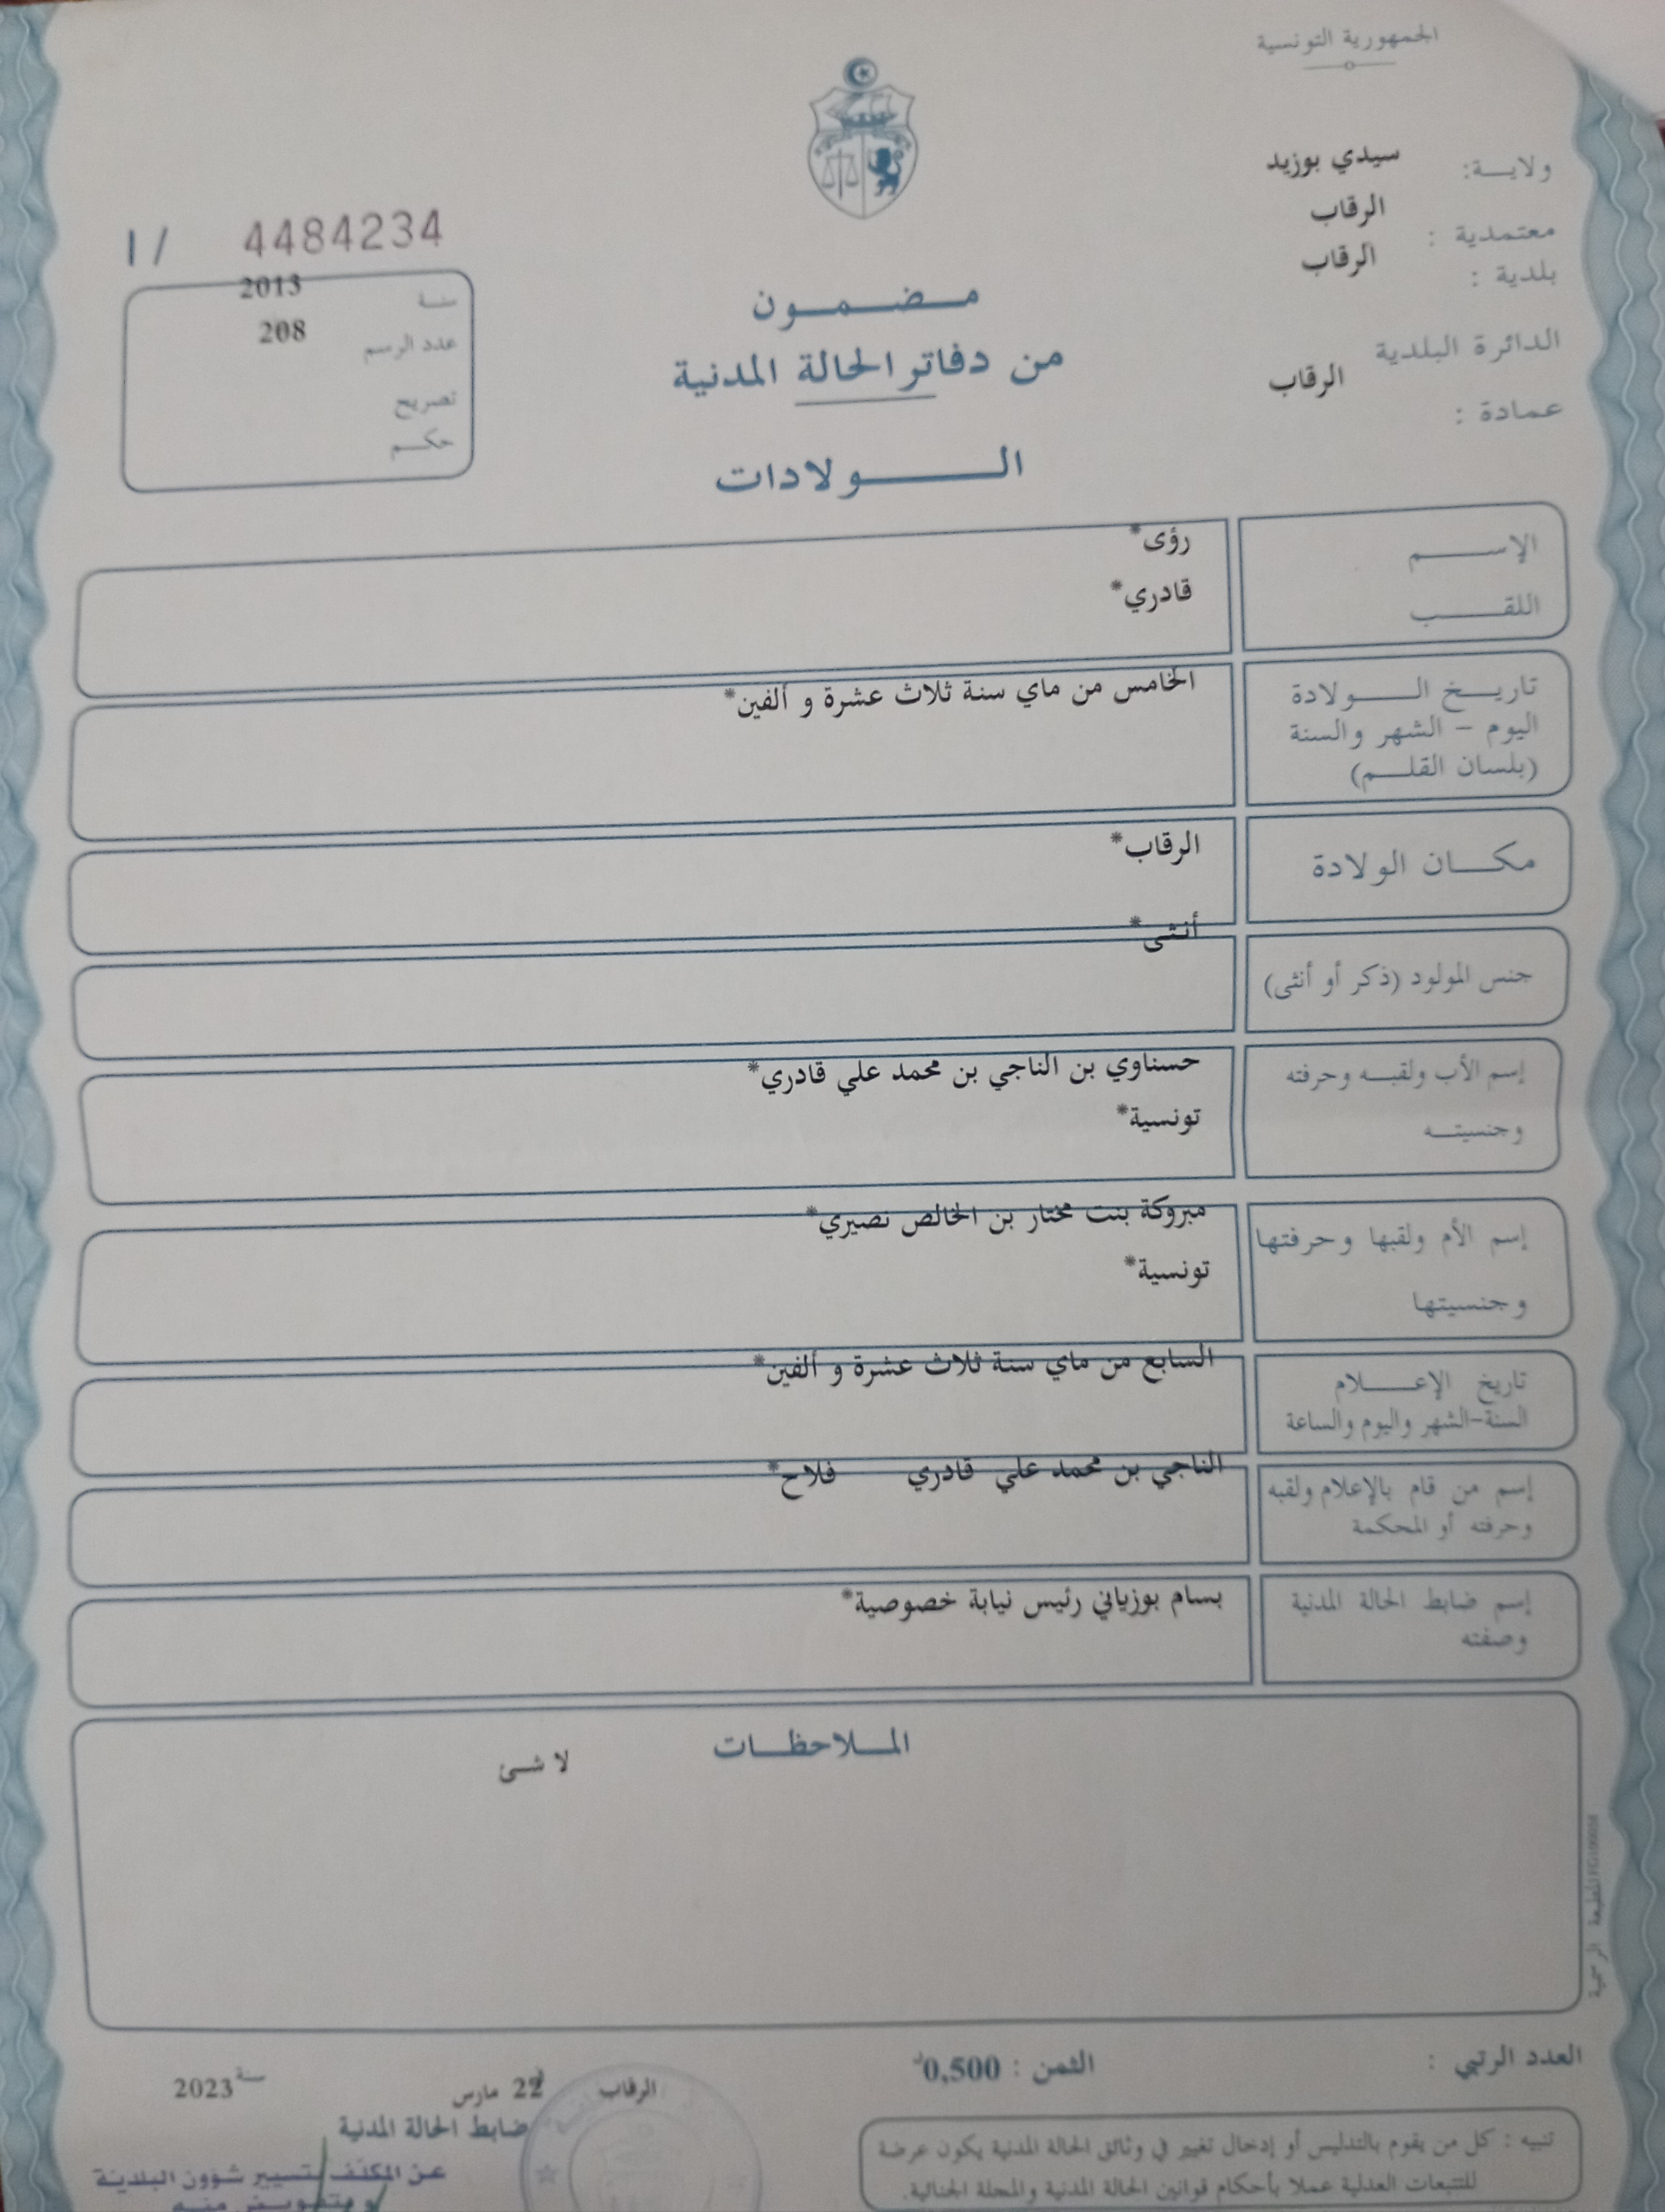 الجمهورية التونسية
ولاية: سيدي بوزيد
معتمدية : الرقاب
بلدية : الرقاب
الدائرة البلدية
عمادة : الرقاب
1/ 4484234
سنة 2013
عدد الرسم 208
تصريح
حكم
مضمون
من دفاتر الحالة المدنية
الولادات
الإسم رؤى*
اللقب قادري*
تاريخ الولادة الخامس من ماي سنة ثلاث عشرة و ألفين*
اليوم - الشهر والسنة
(بلسان القلم)
مكان الولادة الرقاب*
جنس المولود (ذكر أو أنثى) أنثى*
إسم الأب ولقبه وحرفته حسناوي بن الناجي بن محمد علي قادري*
وجنسيته تونسية*
إسم الأم ولقبها وحرفتها مبروكة بنت مختار بن الخالص نصيري*
وجنسيتها تونسية*
تاريخ الإعلام السابع من ماي سنة ثلاث عشرة و ألفين*
السنة-الشهر واليوم والساعة
إسم من قام بالإعلام ولقبه الناجي بن محمد علي قادري فلاح*
وحرفته أو المحكمة
إسم ضابط الحالة المدنية بسام بوزياني رئيس نيابة خصوصية*
وصفته
الملاحظات
لا شئ
المطبعة الرسمية
العدد الرتبي :
الثمن : 0,500د
الرقاب 22 مارس سنة 2023
ضابط الحالة المدنية
عن المكلف بتسيير شؤون البلدية
و بتفويض منه
تنبيه : كل من يقوم بالتدليس أو إدخال تغيير في وثائق الحالة المدنية يكون عرضة
للتتبعات العدلية عملا بأحكام قوانين الحالة المدنية والمجلة الجنائية.